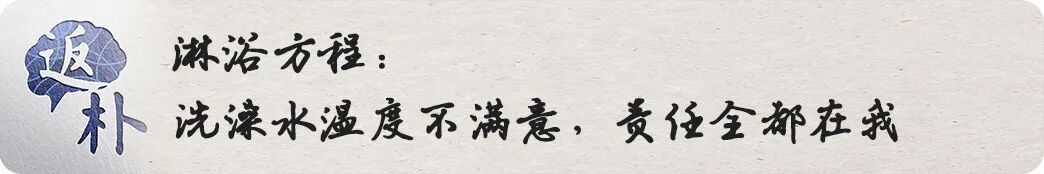 返朴
淋浴方程：
洗澡水温度不满意，责任全都在我